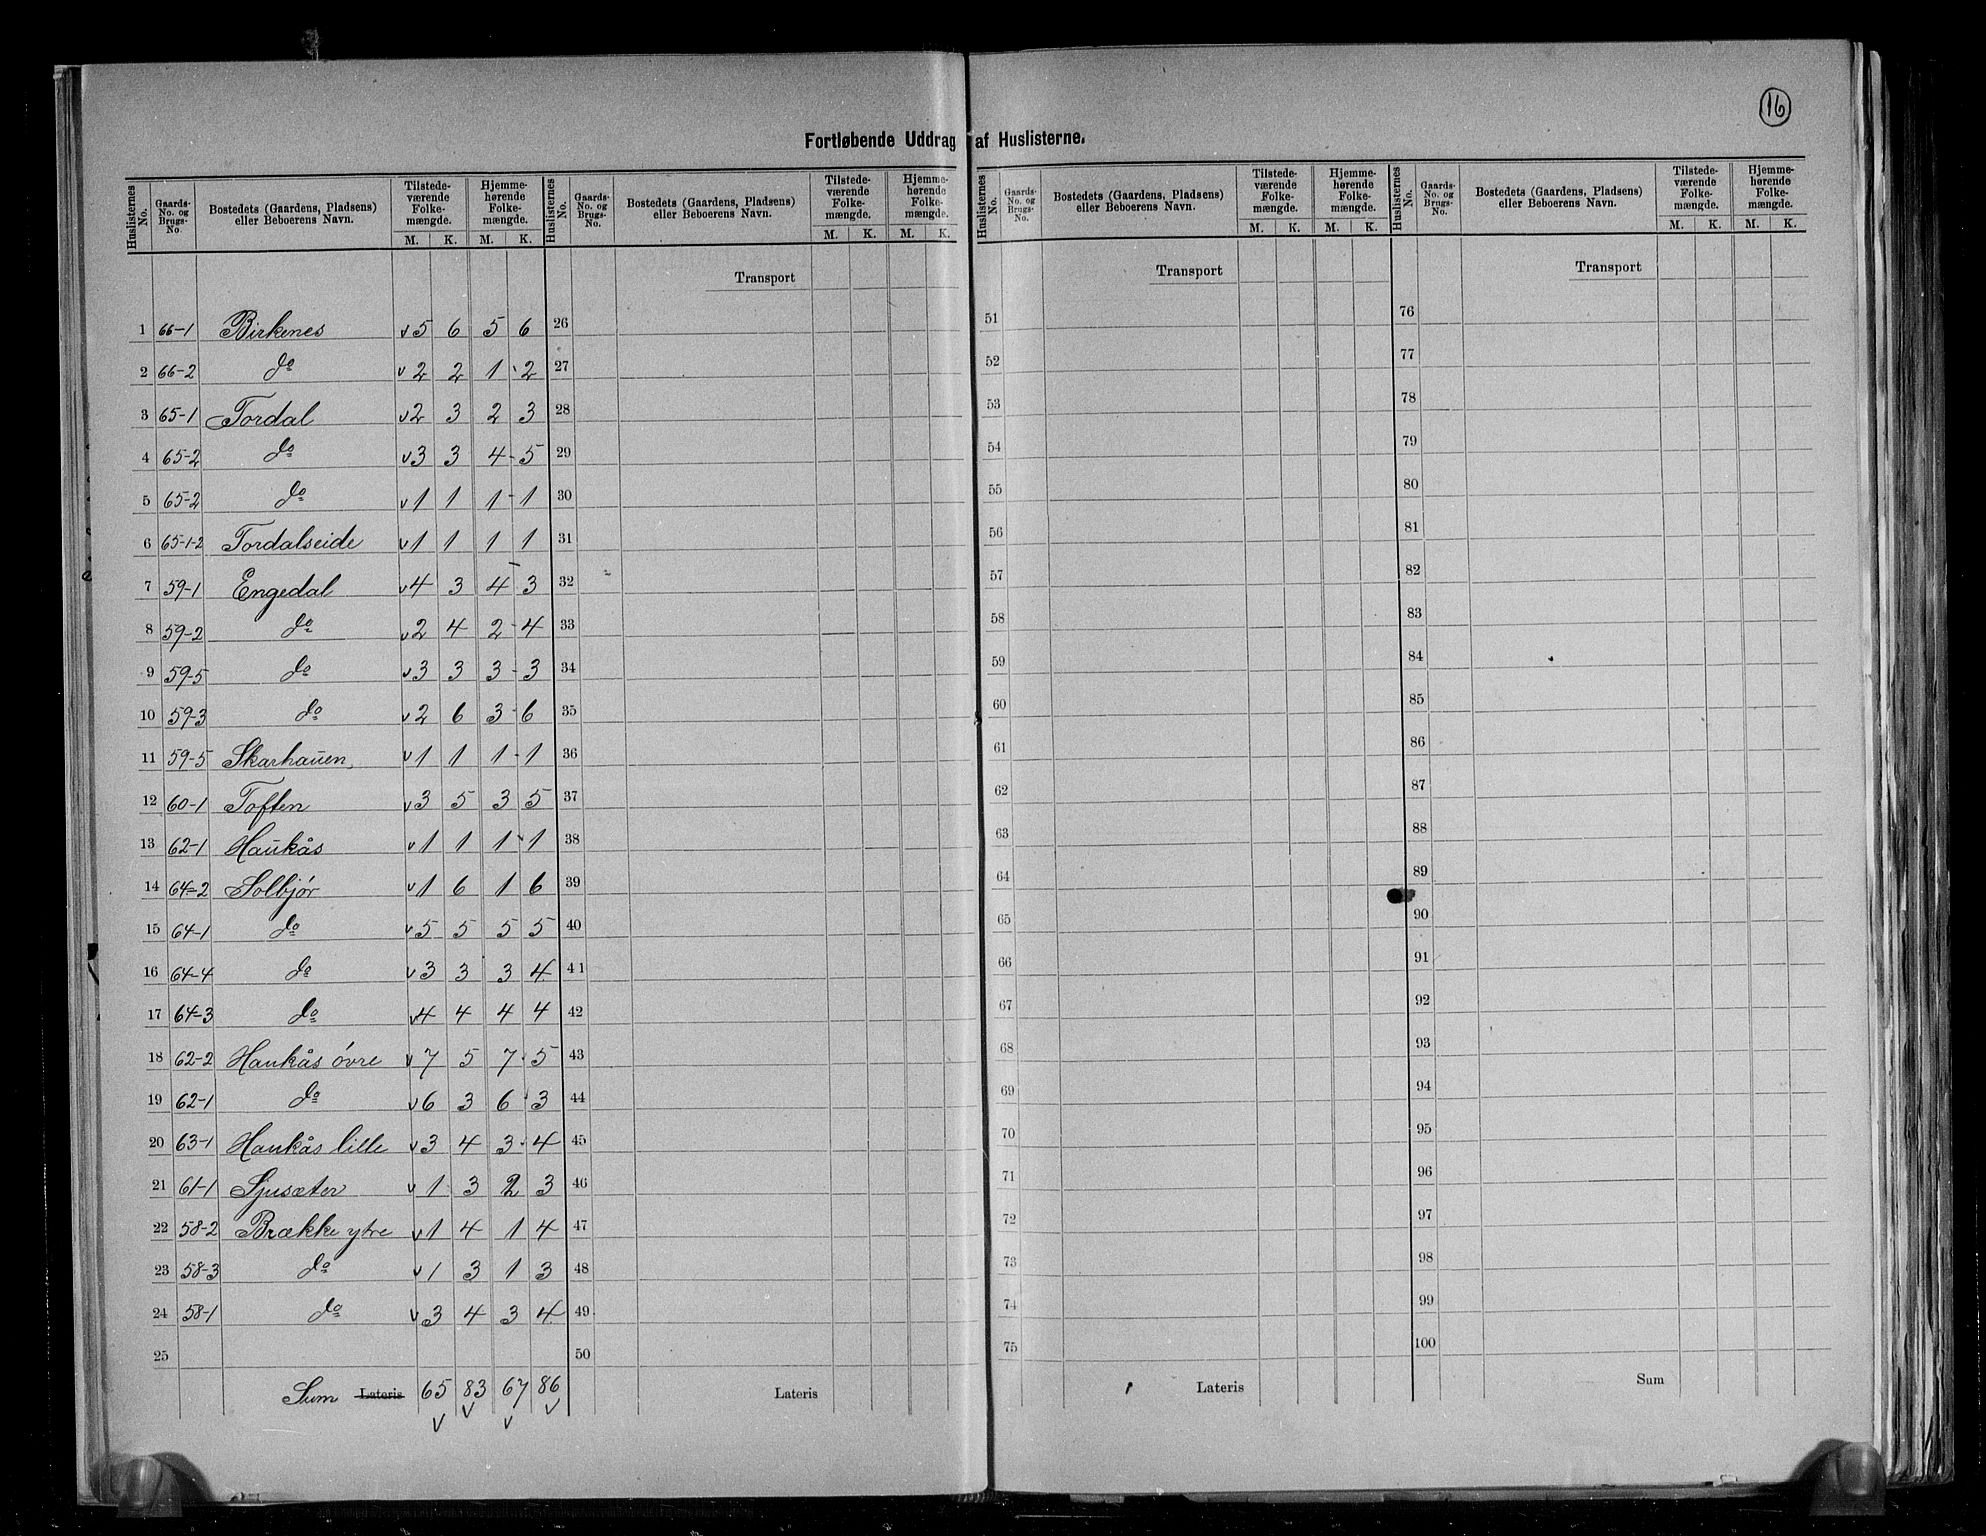 16
Fortløbende Uddrag af Huslisterne.
Huslisternes No. | Gaards-No. og Brugs-No. | Bostedets (Gaardens, Pladsens) eller Beboerens Navn. | Tilstedeværende Folkemængde. M. K. | Hjemmehørende Folkemængde. M. K. | Huslisternes No. | Gaards-No. og Brugs-No. | Bostedets (Gaardens, Pladsens) eller Beboerens Navn. | Tilstedeværende Folkemængde. M. K. | Hjemmehørende Folkemængde. M. K. | Huslisternes No. | Gaards-No. og Brugs-No. | Bostedets (Gaardens, Pladsens) eller Beboerens Navn. | Tilstedeværende Folkemængde. M. K. | Hjemmehørende Folkemængde. M. K. | Huslisternes No. | Gaards-No. og Brugs-No. | Bostedets (Gaardens, Pladsens) eller Beboerens Navn. | Tilstedeværende Folkemængde. M. K. | Hjemmehørende Folkemængde. M. K.
Transport | Transport | Transport
1 66-1 Birkenes v 5 6 5 6 | 26 | 51 | 76
2 66-2 do v 2 2 1 2 | 27 | 52 | 77
3 65-1 Tordal v 2 3 2 3 | 28 | 53 | 78
4 65-2 do v 3 3 4 - 5 | 29 | 54 | 79
5 65-2 do v 1 1 1 - 1 | 30 | 55 | 80
6 65-1-2 Tordalseide v 1 1 1 1 | 31 | 56 | 81
7 59-1 Engedal v 4 3 4 3 | 32 | 57 | 82
8 59-2 do v 2 4 2 - 4 | 33 | 58 | 83
9 59-5 do v 3 3 3 - 3 | 34 | 59 | 84
10 59-3 do v 2 6 3 - 6 | 35 | 60 | 85
11 59-5 Skarhauen v 1 1 1 - 1 | 36 | 61 | 86
12 60-1 Toften v 3 5 3 5 | 37 | 62 | 87
13 62-1 Haukås v 1 1 1 1 | 38 | 63 | 88
14 64=2 Solbjør v 1 6 1 6 | 39 | 64 | 89
15 64-1 do v 5 5 5 5 | 40 | 65 | 90
16 64-4 do v 3 3 3 4 | 41 | 66 | 91
17 64-3 do v 4 4 4 4 | 42 | 67 | 92
18 62-2 Haukås övre v 7 5 7 - 5 | 43 | 68 | 93
19 62-1 do v 6 3 6 3 | 44 | 69 | 94
20 63-1 Haukås lille v 3 4 3 - 4 | 45 | 70 | 95
21 61-1 Sjusæter v 1 3 2 3 | 46 | 71 | 96
22 58-2 Brække ytre v 1 4 1 4 | 47 | 72 | 97
23 58-3 do v 1 3 1 3 | 48 | 73 | 98
24 58-1 do v 3 4 3 4 | 49 | 74 | 99
25 | 50 | 75 | 100
Sum Lateris 65 83 67 86 | Lateris | Lateris | Sum
v v v v